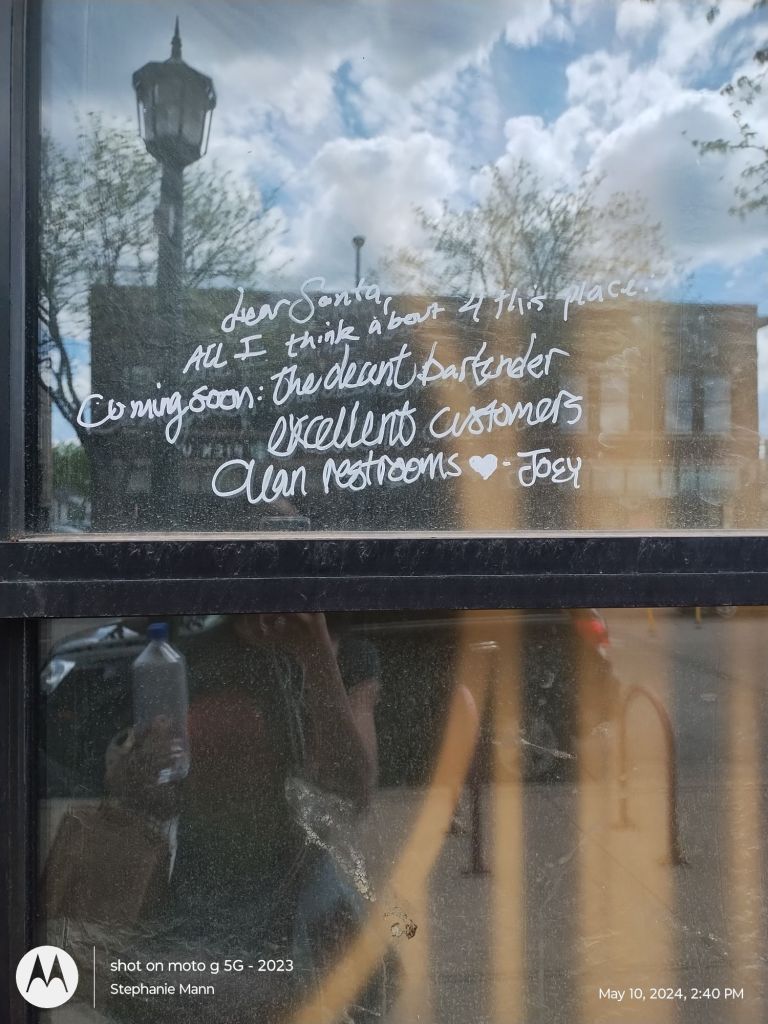 dear Santa,
ALL I think about 4 this place:
Coming soon: the decent bartender
excellent customers
Clean restrooms ♥ - Joey
shot on moto g 5G - 2023
Stephanie Mann
May 10, 2024, 2:40 PM